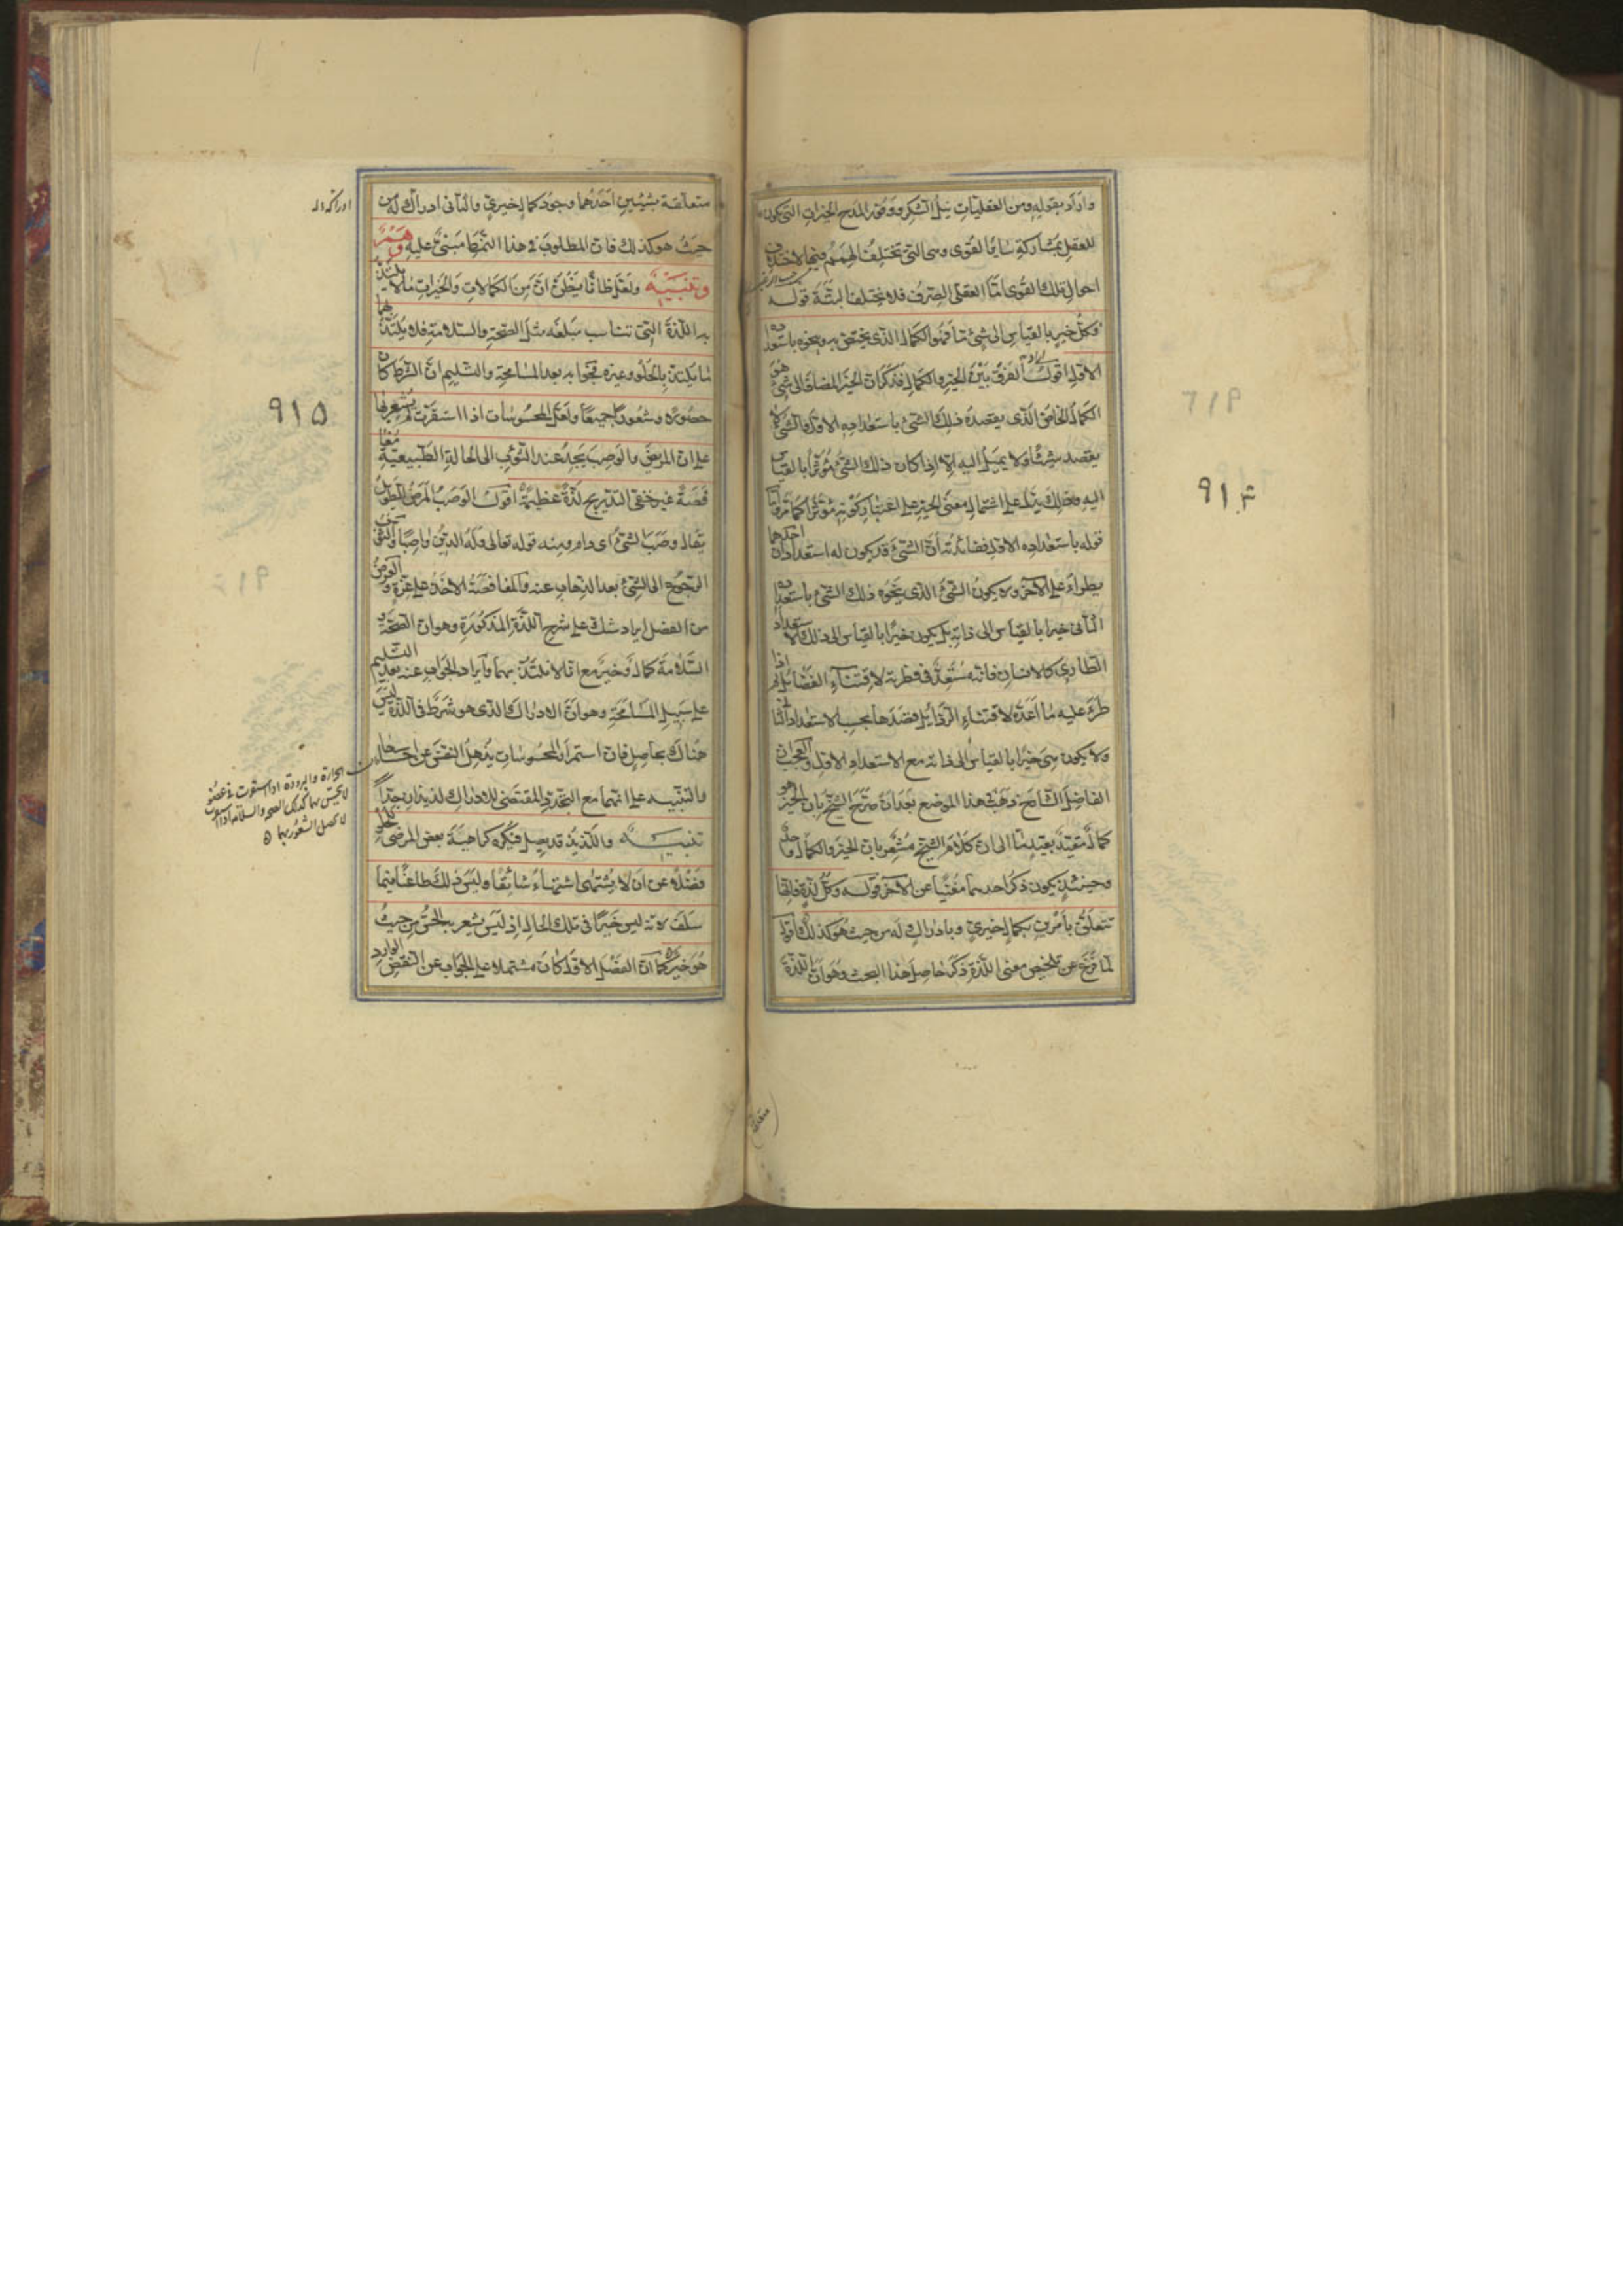 واراد بقوله ومن العقليات نيل الشكر ووفور المدح الخيرات التي تكون
للعقل بمشاركة سائر القوى وهي التي تختلف الهمم فيها لاختلاف
احوال تلك القوى اما العقلي الصرف فلا يختلف البتة قوله
وكل خير بالقياس الى شيء ما فهو الكمال الذي يختص به وينحوه باستعداده
الاول اقول الفرق بين الخير والكمال فذكر ان الخير المضاف الى شيء هو
الكمال الخاص الذي يقصده ذلك الشيء باستعداده الاول والشيء لا
يقصد شيئا ولا يميل اليه الا اذا كان ذلك الشيء مؤثرا بالقياس
اليه وذلك يدل على اشتمال معنى الخير على اعتبار كونه مؤثرا كما مر واما
قوله باستعداده الاول ففائدته ان الشيء قد يكون له استعدادان احدهما
يطراء على الآخر ولا يكون الشيء الذي ينحوه ذلك الشيء باستعداده
الثاني خيرا بالقياس الى ذاته بل يكون خيرا بالقياس الى ذلك الاستعداد
الطاري كالانسان فانه مستعد في فطرته لاقتناء الفضائل ثم اذا
طرء عليه ما اعده لاقتناء الرذائل قصدها بحسب الاستعداد الثاني
ولا يكون هي خيرا بالقياس الى ذاته مع الاستعداد الاول والعجب ان
الفاضل الشارح ذهب في هذا الموضع بعد ان صرح الشيخ بان الخير هو
كمال مقيد بقيد ما الى ان كلام الشيخ مشعر بان الخير والكمال واحد
وحينئذ يكون ذكر احدهما مغنيا عن الآخر قوله وكل لذة فانها
تتعلق بامرين بكمال خيري وبادراك له من حيث هو كذلك اقول
لما فرغ عن تلخيص معنى اللذة ذكر حاصل هذا البحث وهو ان اللذة
۹۱۴
متعلقة بشيئين احدهما وجود كمال خيري والثاني ادراك له من
حيث هو كذلك فان المطلوب في هذا النمط مبني عليه وهم
وتنبيه ولعل ظانا يظن ان من الكمالات والخيرات ما لا يلتذ
به اللذة التي تناسب مبلغه مثل الصحة والسلامة فلا يلتذ بهما
ما يلتذ بالحلو وغيره فجوابه بعد المسامحة والتسليم ان الشرط كان
حصولا وشعورا جميعا ولعل المحسوسات اذا استقرت لم يشعر بها
على ان المريض والوصب يجد عند الثؤب الى الحالة الطبيعية مغافصة
غير خفي التدريج لذة عظيمة اقول الوصب المرض الطويل
يقال وصب الشيء اى دام ومنه قوله تعالى وله الدين واصبا والثؤب
الرجوع الى الشيء بعد الذهاب عنه والمغافصة الاخذ على غرة والغرض
من الفصل ايراد شك على شرح اللذة المذكورة وهو ان الصحة و
السلامة كمال وخير مع انا لا نلتذ بهما وايراد الجواب عنه بعد التسليم
على سبيل المسامحة وهو ان الادراك الذي هو شرط في اللذة ليس
هناك بحاصل فان استمرار المحسوسات يذهل النفس عن احساسها
والتنبيه على انهما مع التجدد المقتضي للادراك لذيذان جدا
تنبيه واللذيذ قد يصل فيكره كراهية بعض المرضى للحلو
فضلا عن ان لا يشتهى اشتهاء شائقا وليس ذلك طاعنا فيما
سلف لانه ليس خيرا في تلك الحال اذ ليس يشعر به الحس من حيث
هو خير كما ان الفصل الاول كان مشتملا على الجواب عن النقض الوارد
۹۱۵
الحرارة والبرودة اذا استقرت في عضو
لا يحس بها كذلك الصحة والسلامة اذا استمرت
لا يحصل الشعور بها